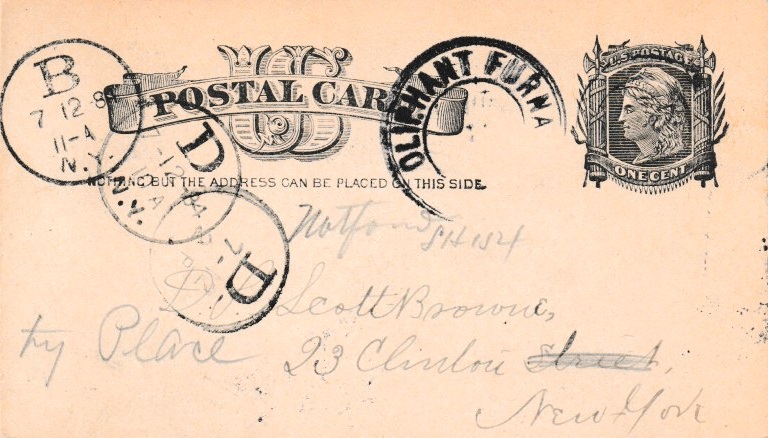 US
POSTAL CAR
NOTHING BUT THE ADDRESS CAN BE PLACED ON THIS SIDE.
B
7 12 8
11-A
N.Y.
D
7-12
N.Y.
D
OLIPHANT FURNA
U.S. POSTAGE
ONE CENT
Not found
Scott Browne,
23 Clinton Street,
try Place
New York